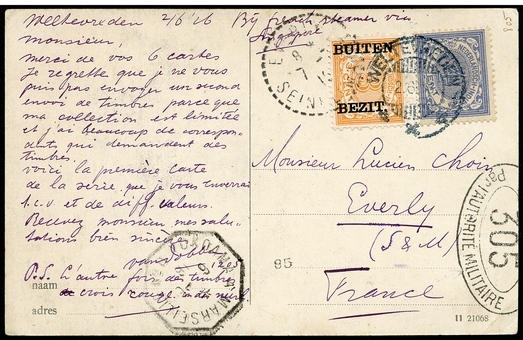 Weltevreden 2/6 '16 By French steamer via
Singapore
Monsieur,
merci de vos 6 cartes
Je regrette que je ne vous
puis pas envoyer un second
envoi de timbres parce que
ma collection est limitée
et j'ai beaucoup de correspon-
dents qui demandent des
timbres.
voici la première carte
de la serie que je vous enverrai
t.c.v. et de diff. valeurs.
Recevez monsieur mes salu-
tations bien sincères
P.S. L'autre fois des timbres
croix rouge
naam
adres
BUITEN
BEZIT.
WELTEVREDEN
Monsieur Lucien Choin
Everly
(S & M)
France
95
Par l'AUTORITÉ MILITAIRE
305
MARSEILLE
11 21068
805